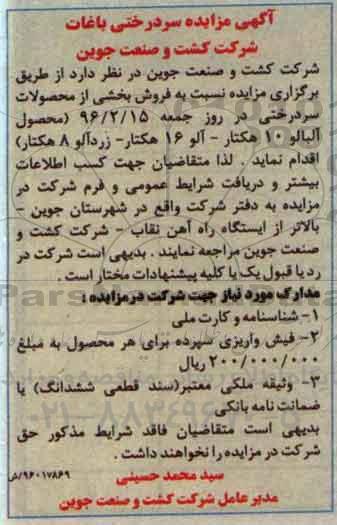 آگهی مزایده سردرختی باغات
شرکت کشت و صنعت جوین
شرکت کشت و صنعت جوین در نظر دارد از طریق
برگزاری مزایده نسبت به فروش بخشی از محصولات
سردرختی در روز جمعه ۹۶/۲/۱۵ (محصول
آلبالو ۱۰ هکتار - آلو ۱۶ هکتار- زردآلو ۸ هکتار)
اقدام نماید . لذا متقاضیان جهت کسب اطلاعات
بیشتر و دریافت شرایط عمومی و فرم شرکت در
مزایده به دفتر شرکت واقع در شهرستان جوین -
بالاتر از ایستگاه راه آهن نقاب - شرکت کشت و
صنعت جوین مراجعه نمایند . بدیهی است شرکت در
رد یا قبول یک یا کلیه پیشنهادات مختار است .
مدارک مورد نیاز جهت شرکت در مزایده :
۱- شناسنامه و کارت ملی
۲- فیش واریزی سپرده برای هر محصول به مبلغ
۲۰۰/۰۰۰/۰۰۰ ریال
۳- وثیقه ملکی معتبر(سند قطعی ششدانگ) یا
ضمانت نامه بانکی
بدیهی است متقاضیان فاقد شرایط مذکور حق
شرکت در مزایده را نخواهند داشت .
سید محمد حسینی
مدیر عامل شرکت کشت و صنعت جوین
۹۶۰۱۷۸۶۹/ش